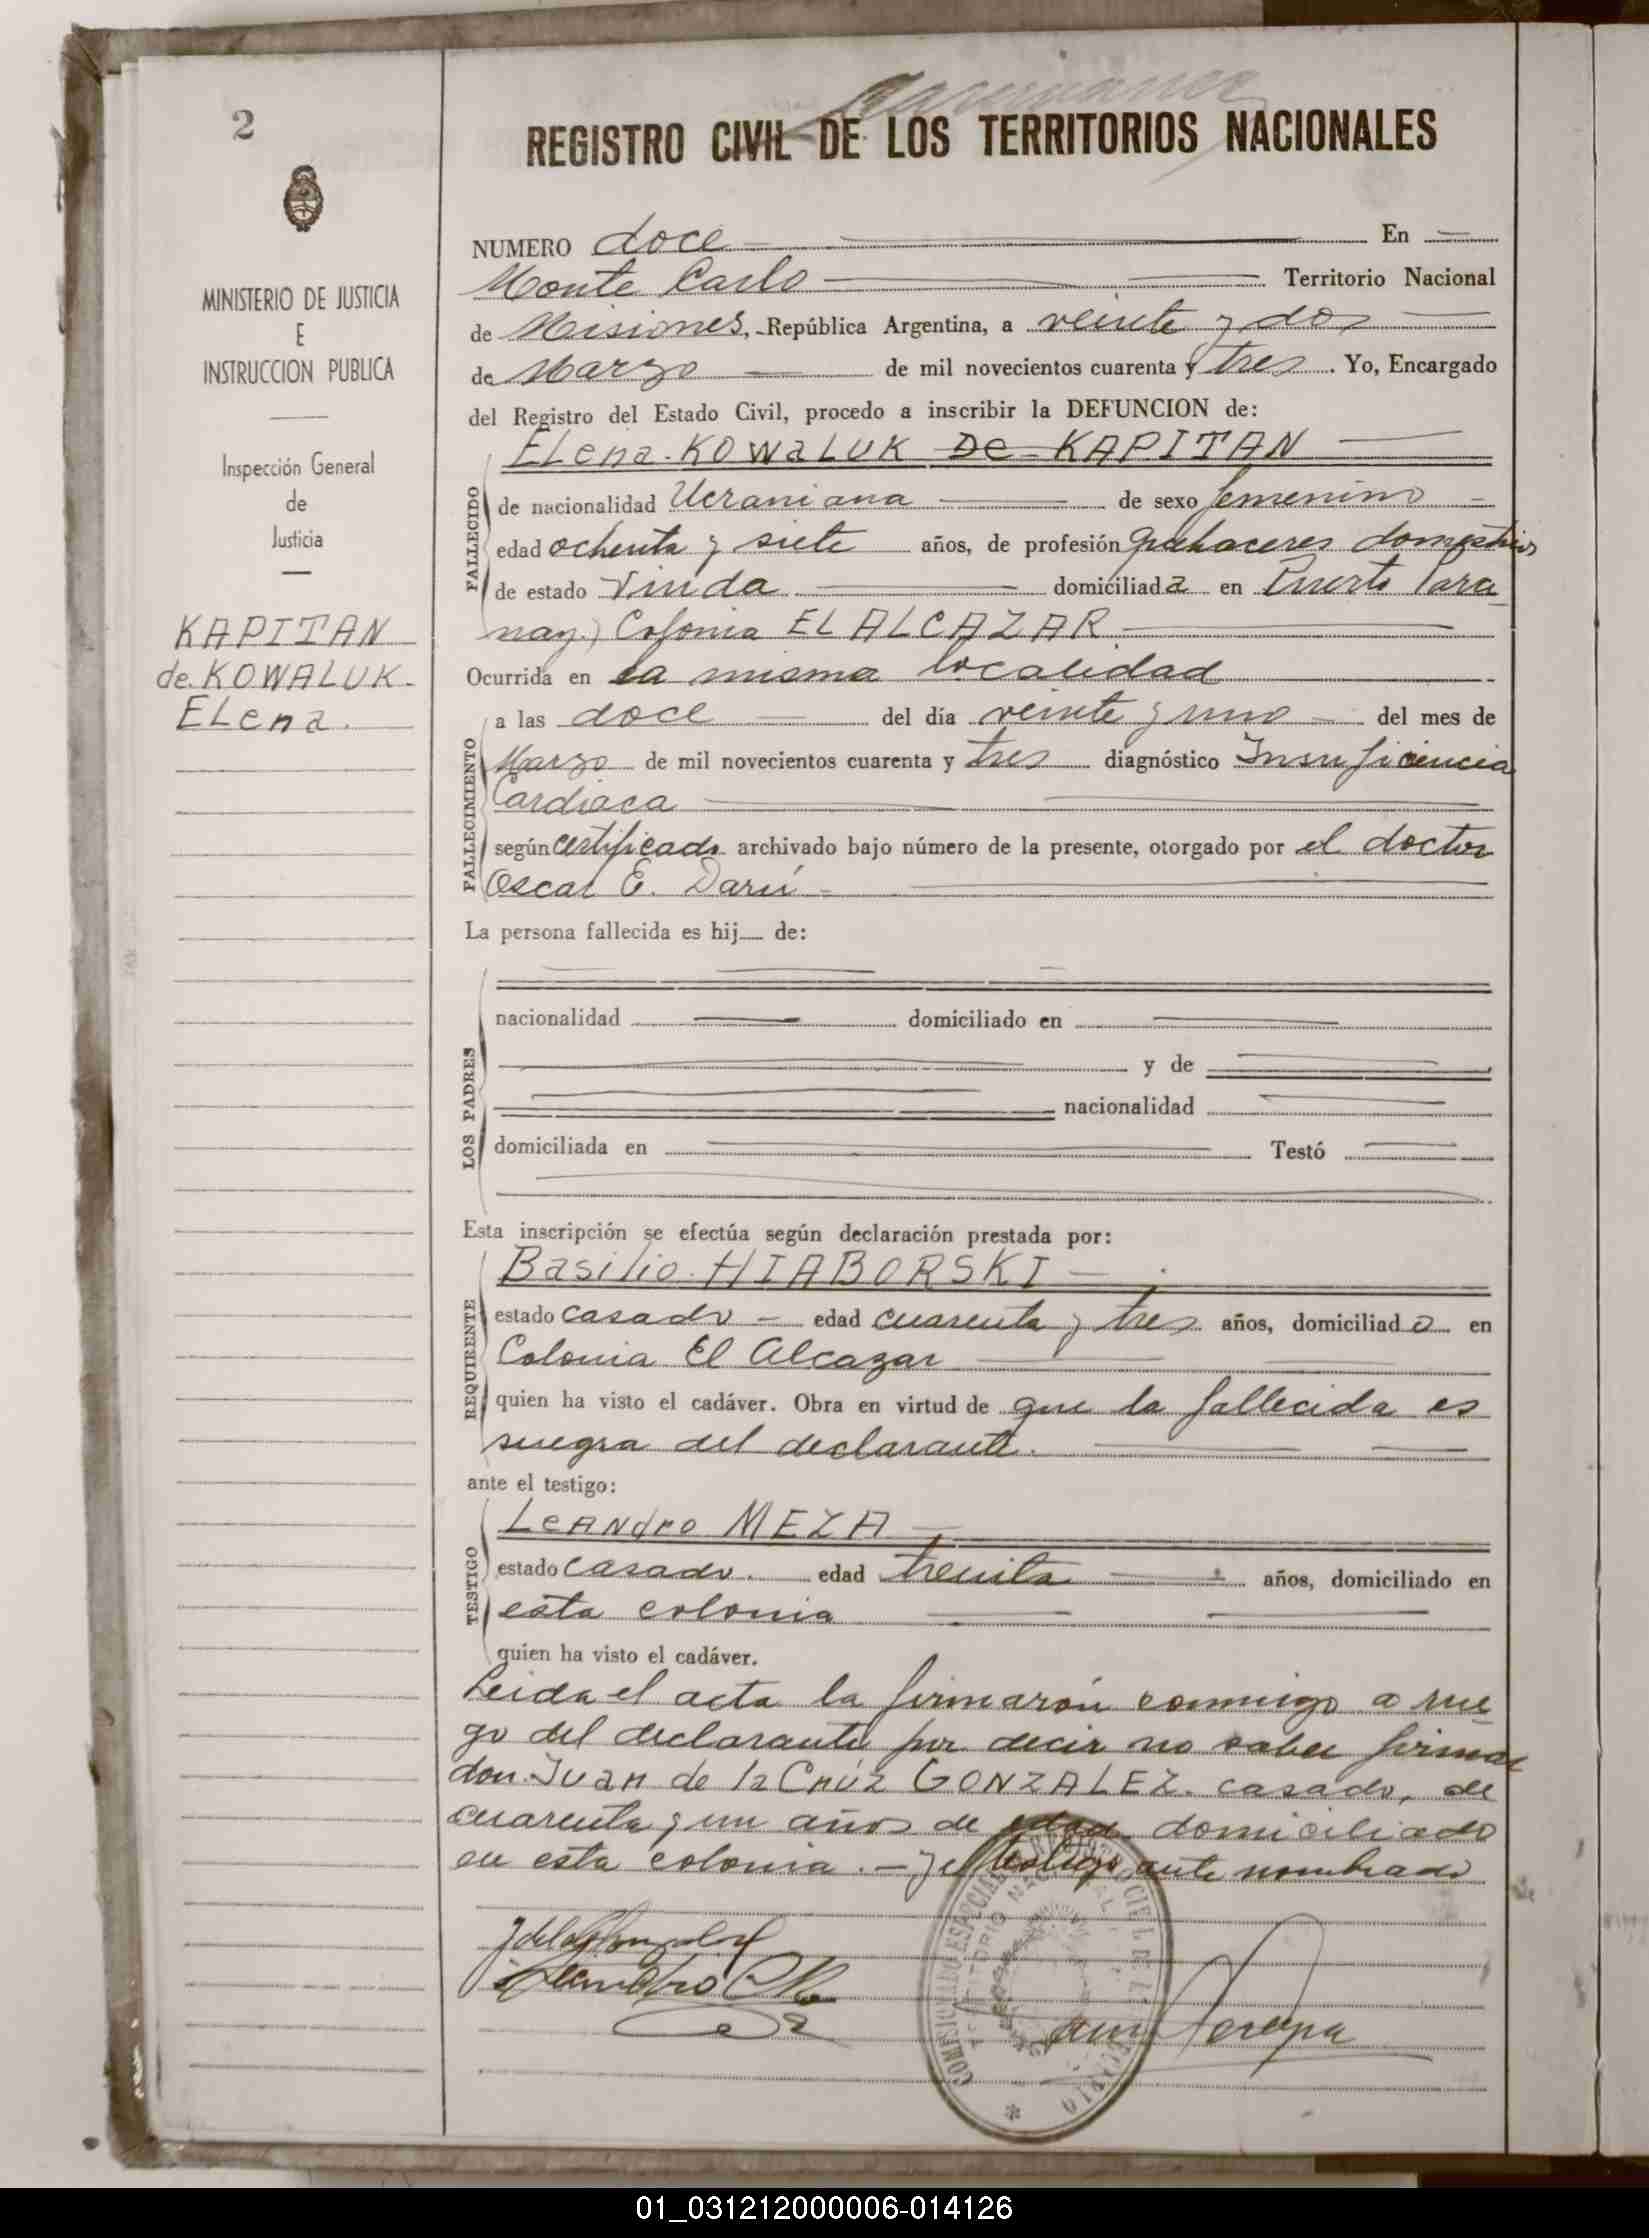 2
REGISTRO CIVIL DE LOS TERRITORIOS NACIONALES
MINISTERIO DE JUSTICIA
E
INSTRUCCION PUBLICA
Inspección General
de
Justicia
KAPITAN
de KOWALUK
ELena.
NUMERO doce En
Monte Carlo Territorio Nacional
de Misiones, República Argentina, a veinte y dos
de Marzo de mil novecientos cuarenta y tres. Yo, Encargado
del Registro del Estado Civil, procedo a inscribir la DEFUNCION de:
ELena KOWaLUK De KAPITAN
FALLECIDO
de nacionalidad Ucraniana de sexo femenino
edad ochenta y siete años, de profesión quehaceres domésticos
de estado Viuda domiciliada en Puerto Para
nay.) Colonia EL ALCAZAR
Ocurrida en la misma localidad
FALLECIMIENTO
a las doce del día veinte y uno del mes de
Marzo de mil novecientos cuarenta y tres diagnóstico Insuficiencia
Cardiaca
según certificado archivado bajo número de la presente, otorgado por el doctor
Oscar E. Darú
La persona fallecida es hij de:
LOS PADRES
nacionalidad domiciliado en
y de
nacionalidad
domiciliada en Testó
Esta inscripción se efectúa según declaración prestada por:
Basilio HIABORSKI
REQUIRENTE
estado casado edad cuarenta y tres años, domiciliado en
Colonia El Alcazar
quien ha visto el cadáver. Obra en virtud de que la fallecida es
suegra del declarante.
ante el testigo:
LeANdro MEZA
TESTIGO
estado casado. edad treinta años, domiciliado en
esta colonia
quien ha visto el cadáver.
Leida el acta la firmarón conmigo a rue-
go del declarante por decir no saber firmar
don Juan de la Cruz GONZALEZ casado, de
cuarenta y un años de edad domiciliado
en esta colonia. - y el testigo ante nombrado
01_031212000006-014126